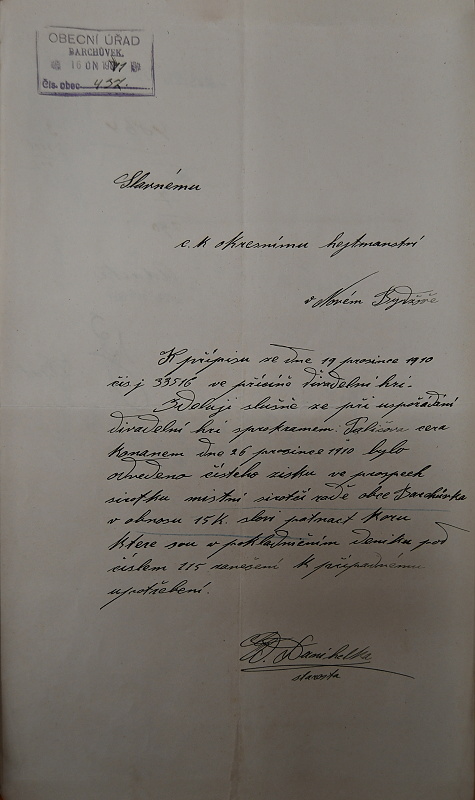 OBECNÍ ÚŘAD
BARCHŮVEK.
16 ÚN
čís. obec 437.
Slavnému
c. k okresnímu hejtmanství
v Novém Bydžově
K přípisu ze dne 19 prosince 1910
čís j 33516 ve příčině divadelní hri.
Zdeluji slušně ze při uspořádání
divadelní hri sprokramem: Paličova cera
konanem dne 26 prosince 1910 bylo
odvedeno čisteho zisku ve prospech
sirotku mistní sirotčí radě obce Barchůvka
v obnosu 15 K. slovi patnact Koru
ktere sou v pokladničním deniku pod
číslem 115 zanešení k případnému
upotřebení.
Danihelka
starosta